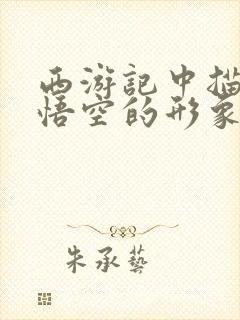 西游記中描
悟空的形象
朱承藝